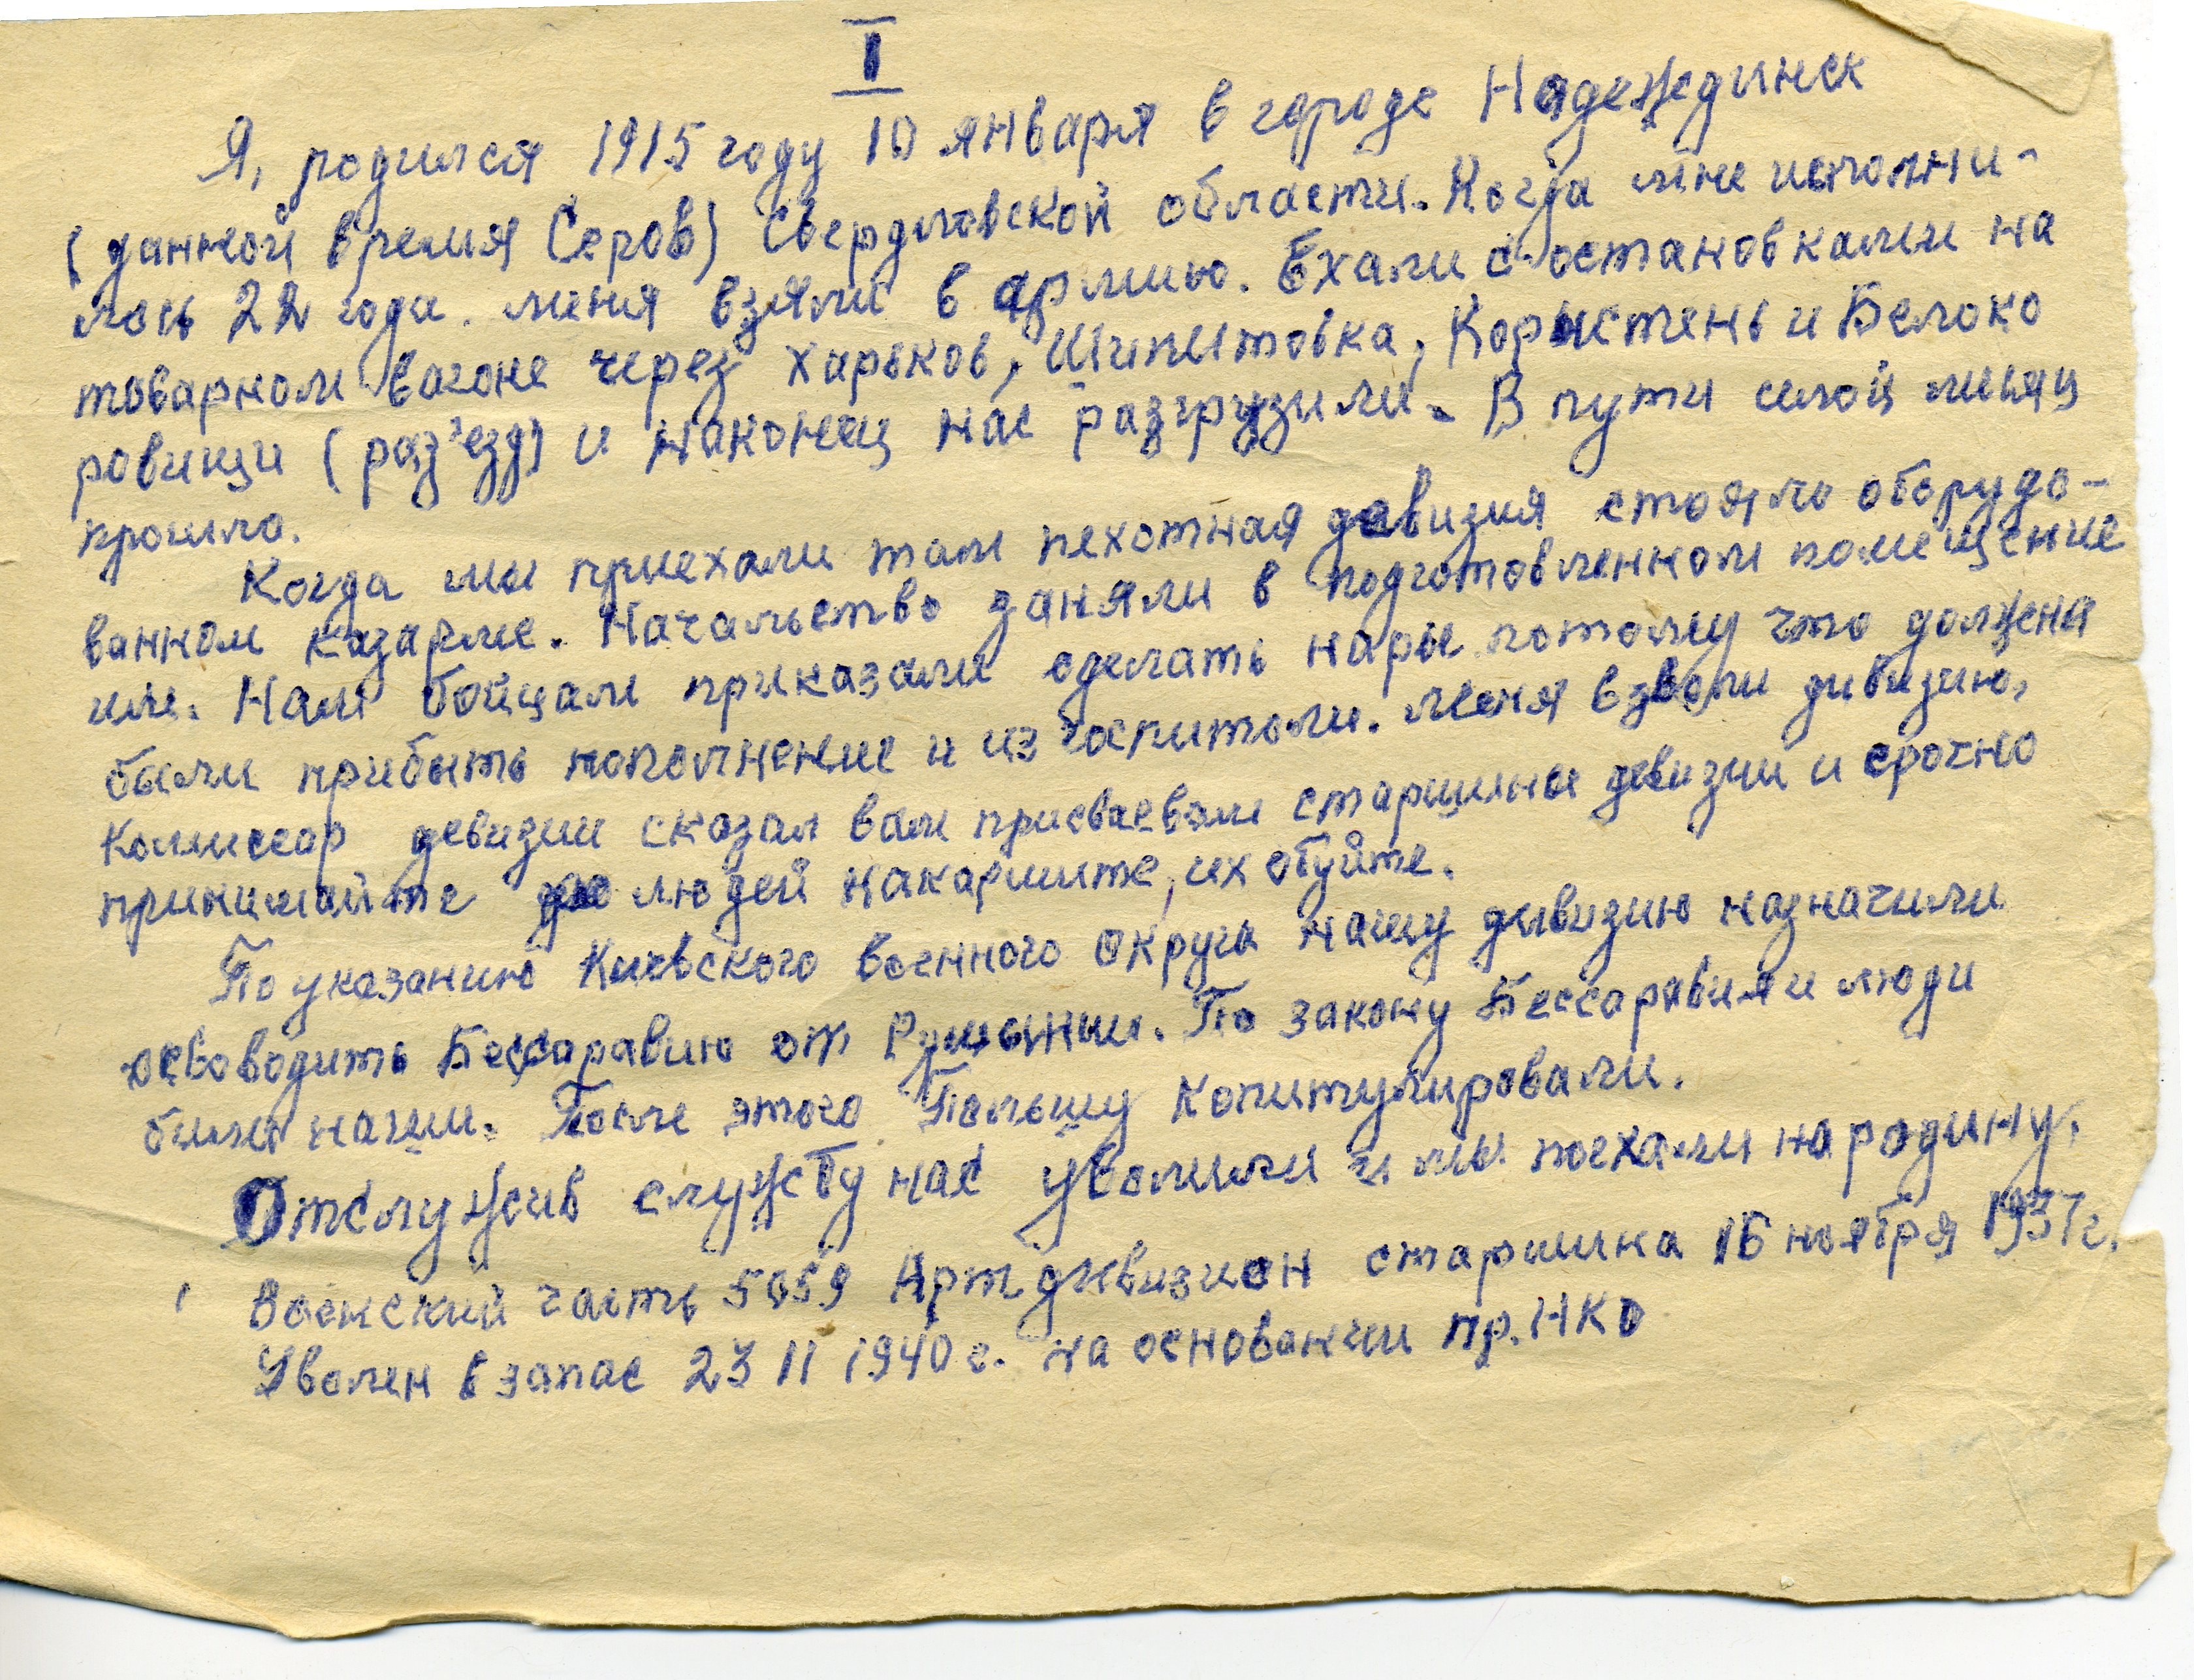 I
Я, родился 1915 году 10 января в городе Надеждинск
(данной время Серов) Свердловской области. Когда мне исполни-
лось 22 года. меня взяли в армию. Ехали с остановками на
товарном вагоне через Харьков, Шипитовка, Коростень и Белоко
ровищи (раз'езд) и наконец нас разгрузили. В пути целой месяц
прошло.
Когда мы приехали там пехотная девизия стояло оборудо-
ванном казарме. Начальство заняли в подготовленном помещение
ими. Нам бойцам приказали сделать нары потому что должена
были прибыть пополнение и из госпитоли. меня взяли дивизию,
комиссар девизии сказал вам присваевам старшины девизии и срочно
принимайте людей накармите, их обуйте.
По указанию Киевского военного округа нашу дивизию назначили
освоводить Бессоравию от Румынии. По закону Бессаравия и люди
были наши. После этого Польшу копитулировали.
Отслужив службу нас уволили и мы поехали на родину.
Воинский часть 5059 Артдивизион старшина 16 ноября 1937г.
Уволен в запас 23 11 1940 г. на основании пр. НКО